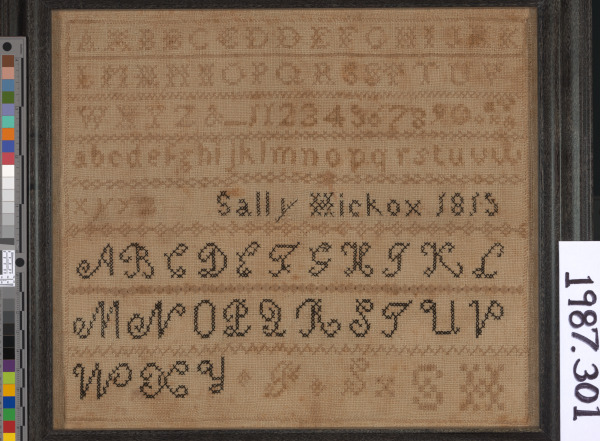 A B C D E F G H I J K
L M N O P Q R S T U V
W X Y Z & 1 1 2 3 4 5 6 7 8 9 0
a b c d e f g h i j k l m n o p q r s t u v w
x y z
Sally Hickox 1815
A B C D E F G H I K L
M N O P Q R S T U V
W X Y
S H
1987.301